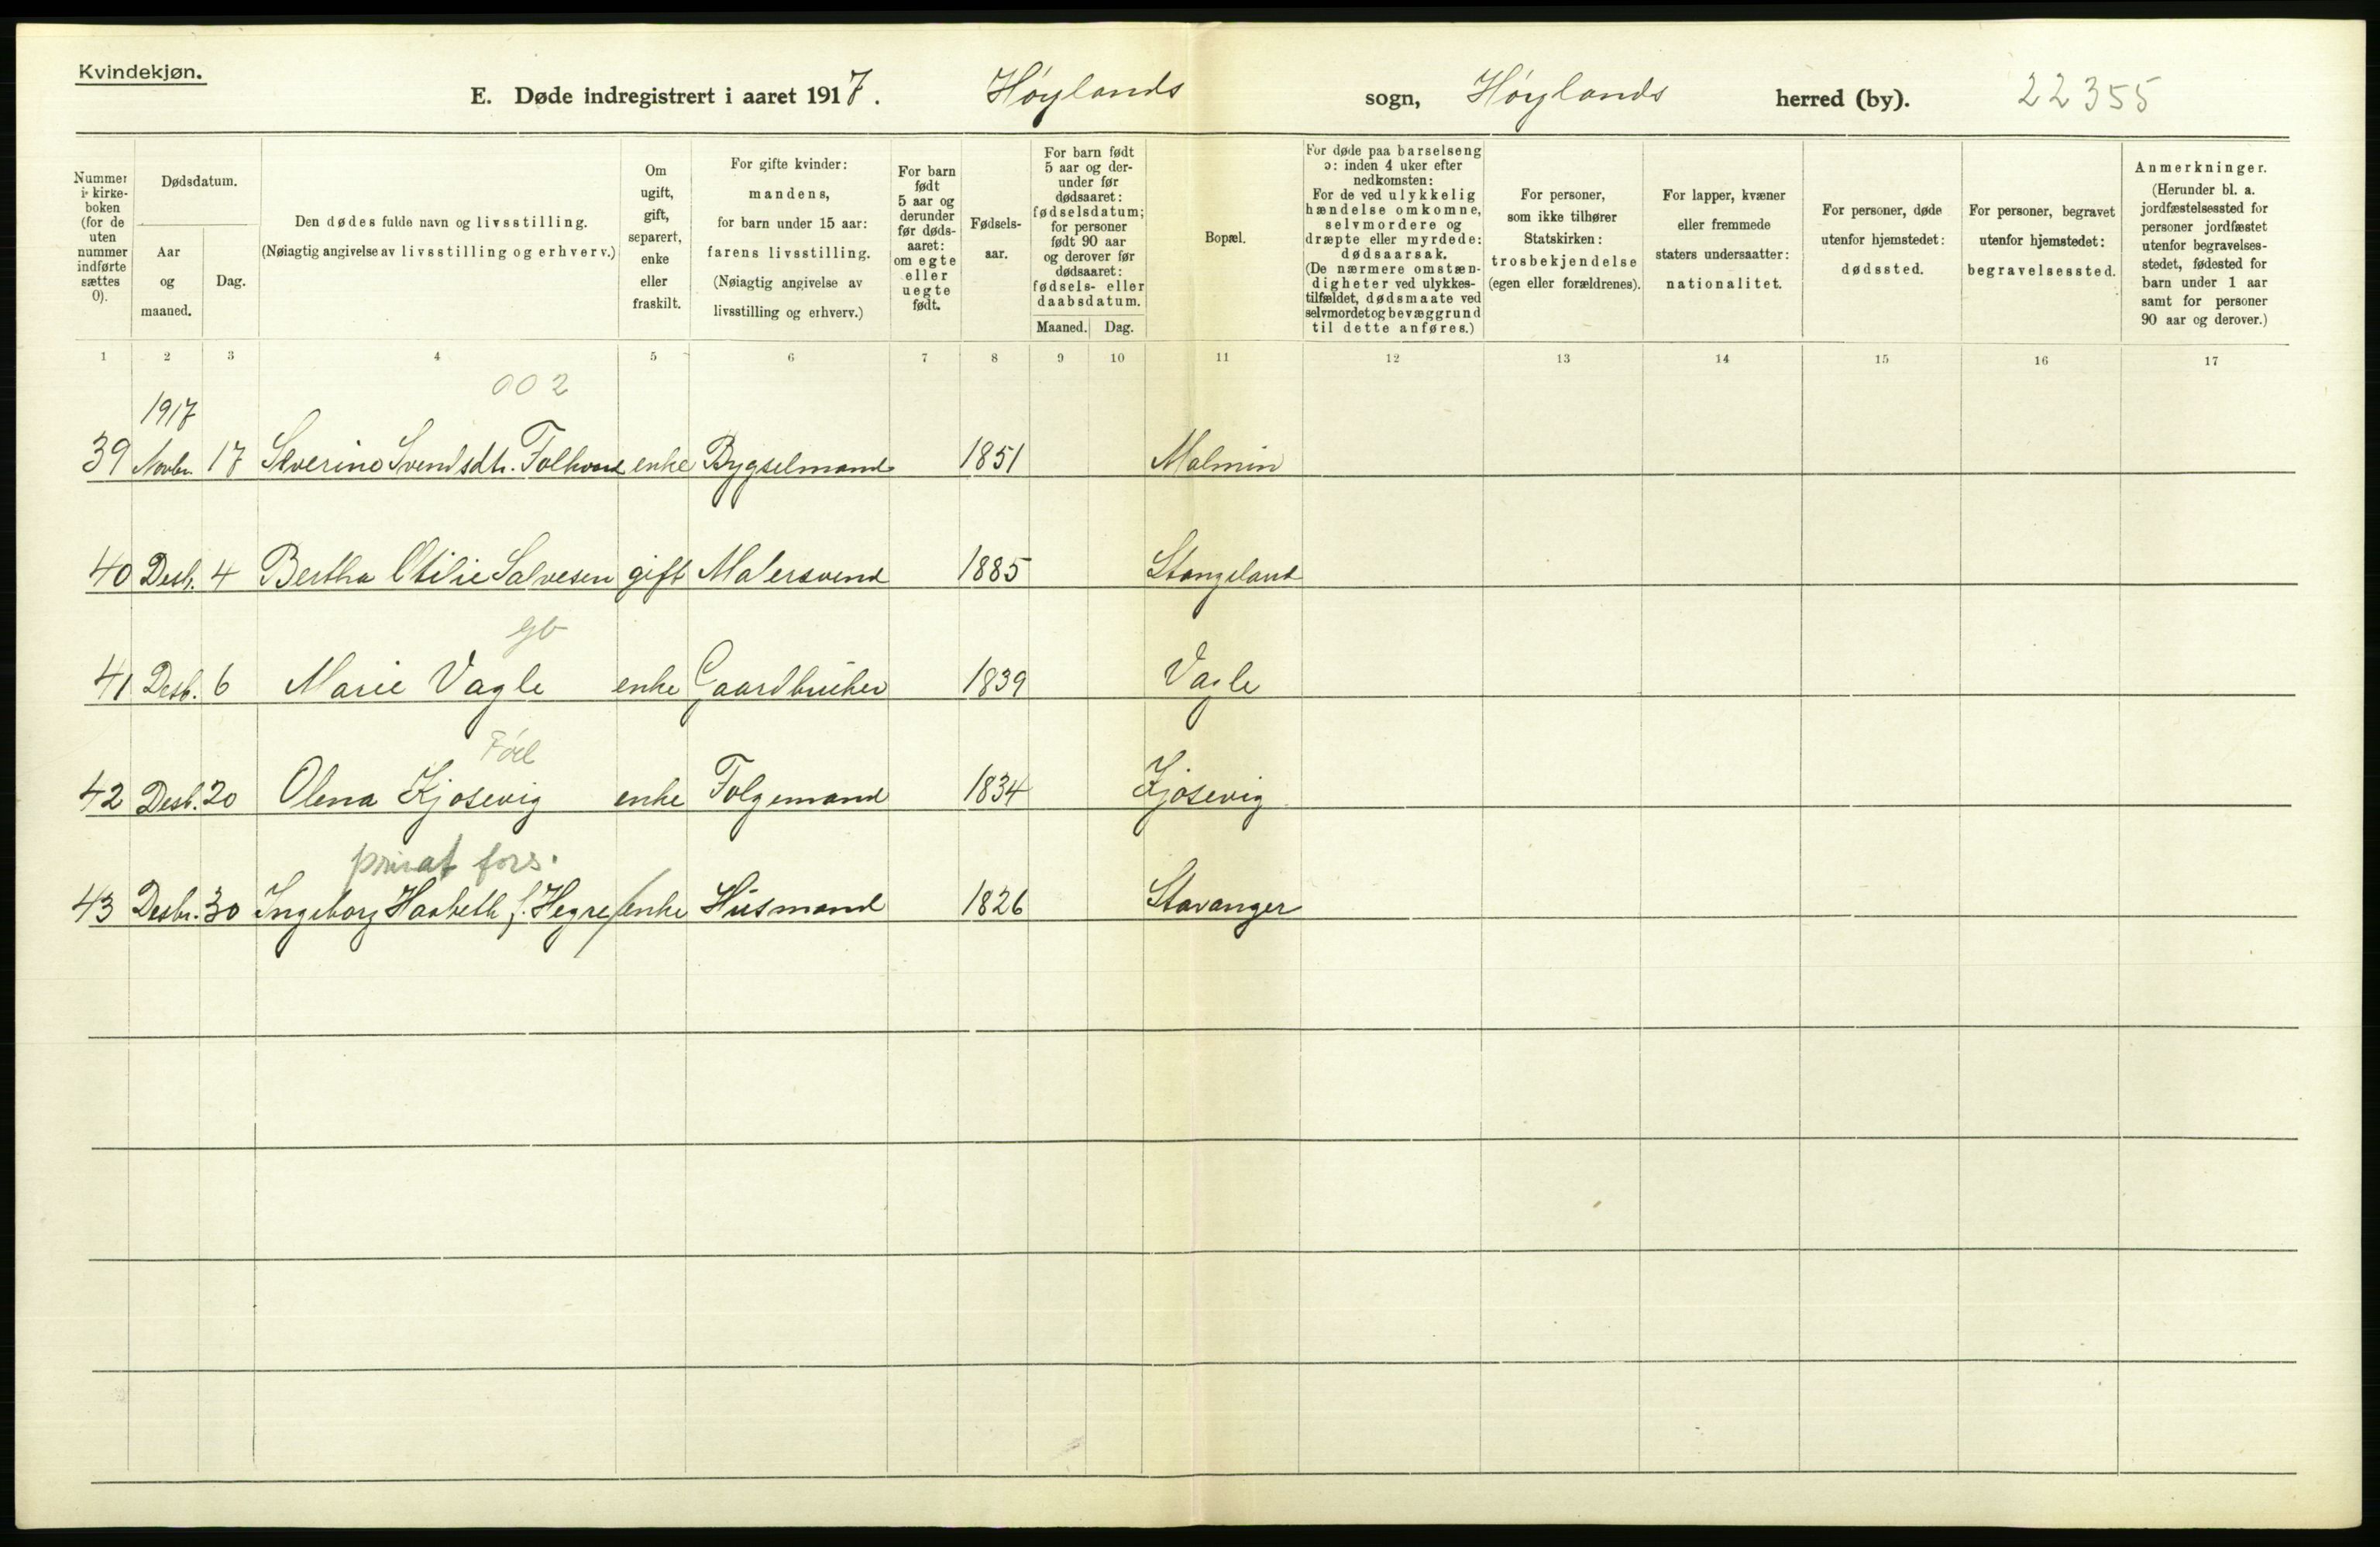 Kvindekjøn.
E. Døde indregistrert i aaret 1917. Høylands sogn, Høylands herred (by). 22355
Nummer i kirke-boken (for de uten nummer indførte sættes 0).
Dødsdatum.
Aar og maaned.
Dag.
Den dødes fulde navn og livsstilling.
(Nøiagtig angivelse av livsstilling og erhverv.)
Om ugift, gift, separert, enke eller fraskilt.
For gifte kvinder: mandens, for barn under 15 aar: farens livsstilling.
(Nøiagtig angivelse av livsstilling og erhverv.)
For barn født 5 aar og derunder før døds-aaret: om egte eller uegte født.
Fødsels-aar.
For barn født 5 aar og der-under før dødsaaret: fødselsdatum; for personer født 90 aar og derover før dødsaaret: fødsels- eller daabsdatum.
Maaned. Dag.
Bopæl.
For døde paa barselseng ɔ: inden 4 uker efter nedkomsten:
For de ved ulykkelig hændelse omkomne, selvmordere og dræpte eller myrdede: dødsaarsak.
(De nærmere omstæn-digheter ved ulykkes-tilfældet, dødsmaate ved selvmordet og bevæggrund til dette anføres.)
For personer, som ikke tilhører Statskirken: trosbekjendelse (egen eller forældrenes).
For lapper, kvæner eller fremmede staters undersaatter: nationalitet.
For personer, døde utenfor hjemstedet: dødssted.
For personer, begravet utenfor hjemstedet: begravelsessted.
Anmerkninger.
(Herunder bl. a. jordfæstelsessted for personer jordfæstet utenfor begravelses-stedet, fødested for barn under 1 aar samt for personer 90 aar og derover.)
1 2 3 4 5 6 7 8 9 10 11 12 13 14 15 16 17
002
1917
39 Novbr. 17 Severine Svendsdtr. Folkvord enke Bygselmand 1851 Malmin
40 Desb. 4 Bertha Otilie Salvesen gift Malersvend 1885 Stangeland
gb
41 Desb. 6 Marie Vagle enke Gaardbruker 1839 Vagle
Föd
42 Desb. 20 Olena Kjosevig enke Folgemand 1834 Kjosevig
privat fors.
43 Desbr. 30 Ingeborg Haabeth f. Hegre enke Husmand 1826 Stavanger